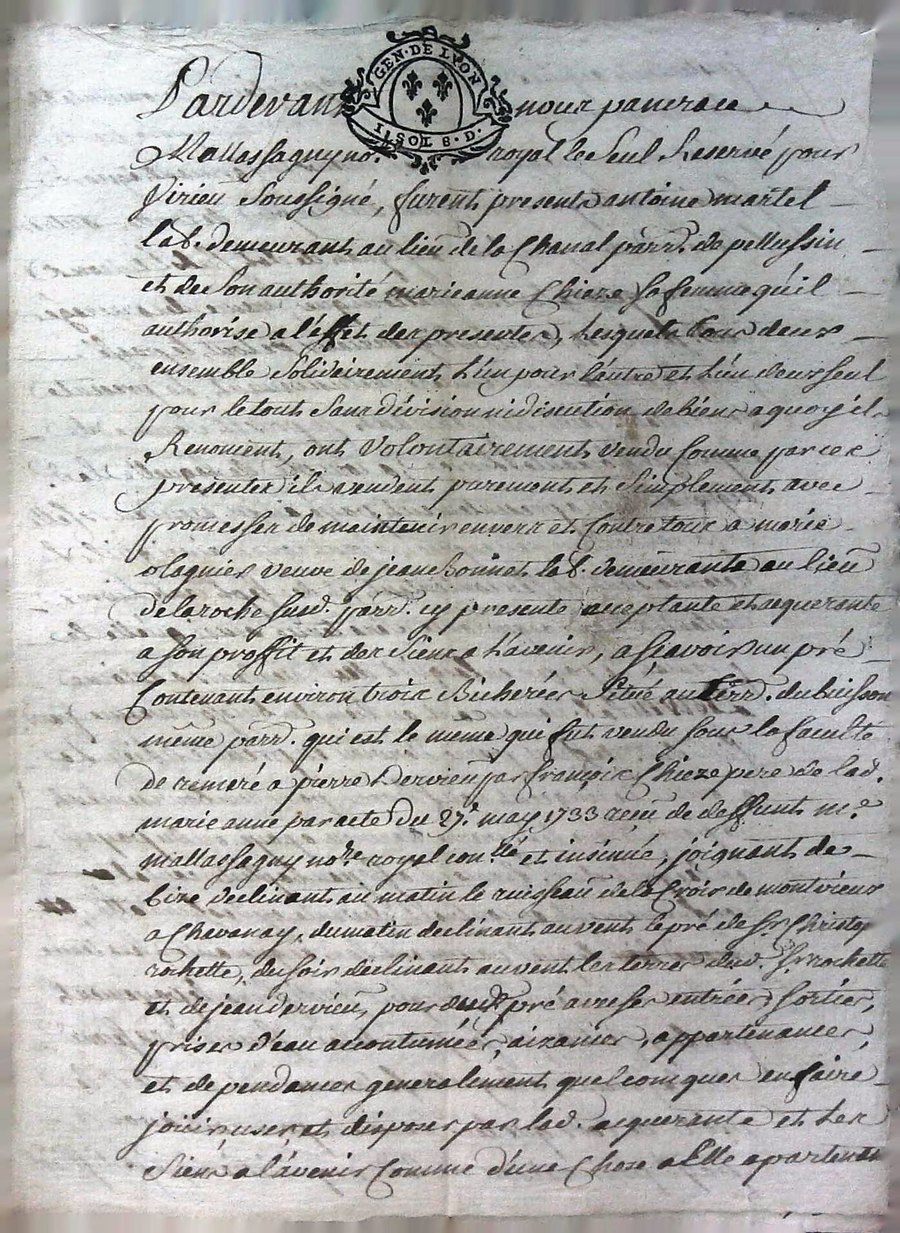 GEN · DE LYON
1 SOL 8 · D ·
Pardevant nous pancrace
Mallassagny no.re royal le Seul Reservé pour
Virieu Soussigné, furent presents antoine martel
lab. demeurant au lieu de la Chanal parr. de pellussin
et de Son authorité marieanne Chieze sa femme qu'il
authorise a l'effet des presentes, Lesquels tous deux
ensemble Solidairement L'un pour L'autre et L'un d'eux seul
pour le tout Sans division ni discution de biens a quoy ils
Renoncent, ont Volontairement vendu Comme par ces
presentes ils vendent purement et Simplement avec
promesses de maintenir envers et Contre tous a marie
olagnier veuve de jean Bonnet lab. demeurante au lieu
de la roche susd. parr. cy presente acceptante et acquerante
a Son proffit et des Siens a L'avenir, a sçavoir un pré
Contenant environ trois Bicherées Situé au terr. du buisson
même parr. qui est le meme qui fut vendu sous la faculté
de remeré a pierre Dervieu par françois Chieze pere de lad.
marie anne par acte du 27.e may 1733 receu de deffunt m.e
mallassagny no.re royal con.llé et insinué, joignant de
bize declinant au matin le ruisseau de la Croix de montvieux
a Chavanay, du matin declinant au vent le pré de Sr. Christop
rochette, du soir declinant au vent les terres dud. Sr. rochette
et de jean dervieu, pour dud. pré avec ses entrées, sorties,
prises d'eau acoutumées, aizances, appartenances,
et dependances generalement quelconques en faire
joüir, user, et disposer par lad. acquerante et Les
Siens a l'avenir Comme d'une Chose a Elle apartenan